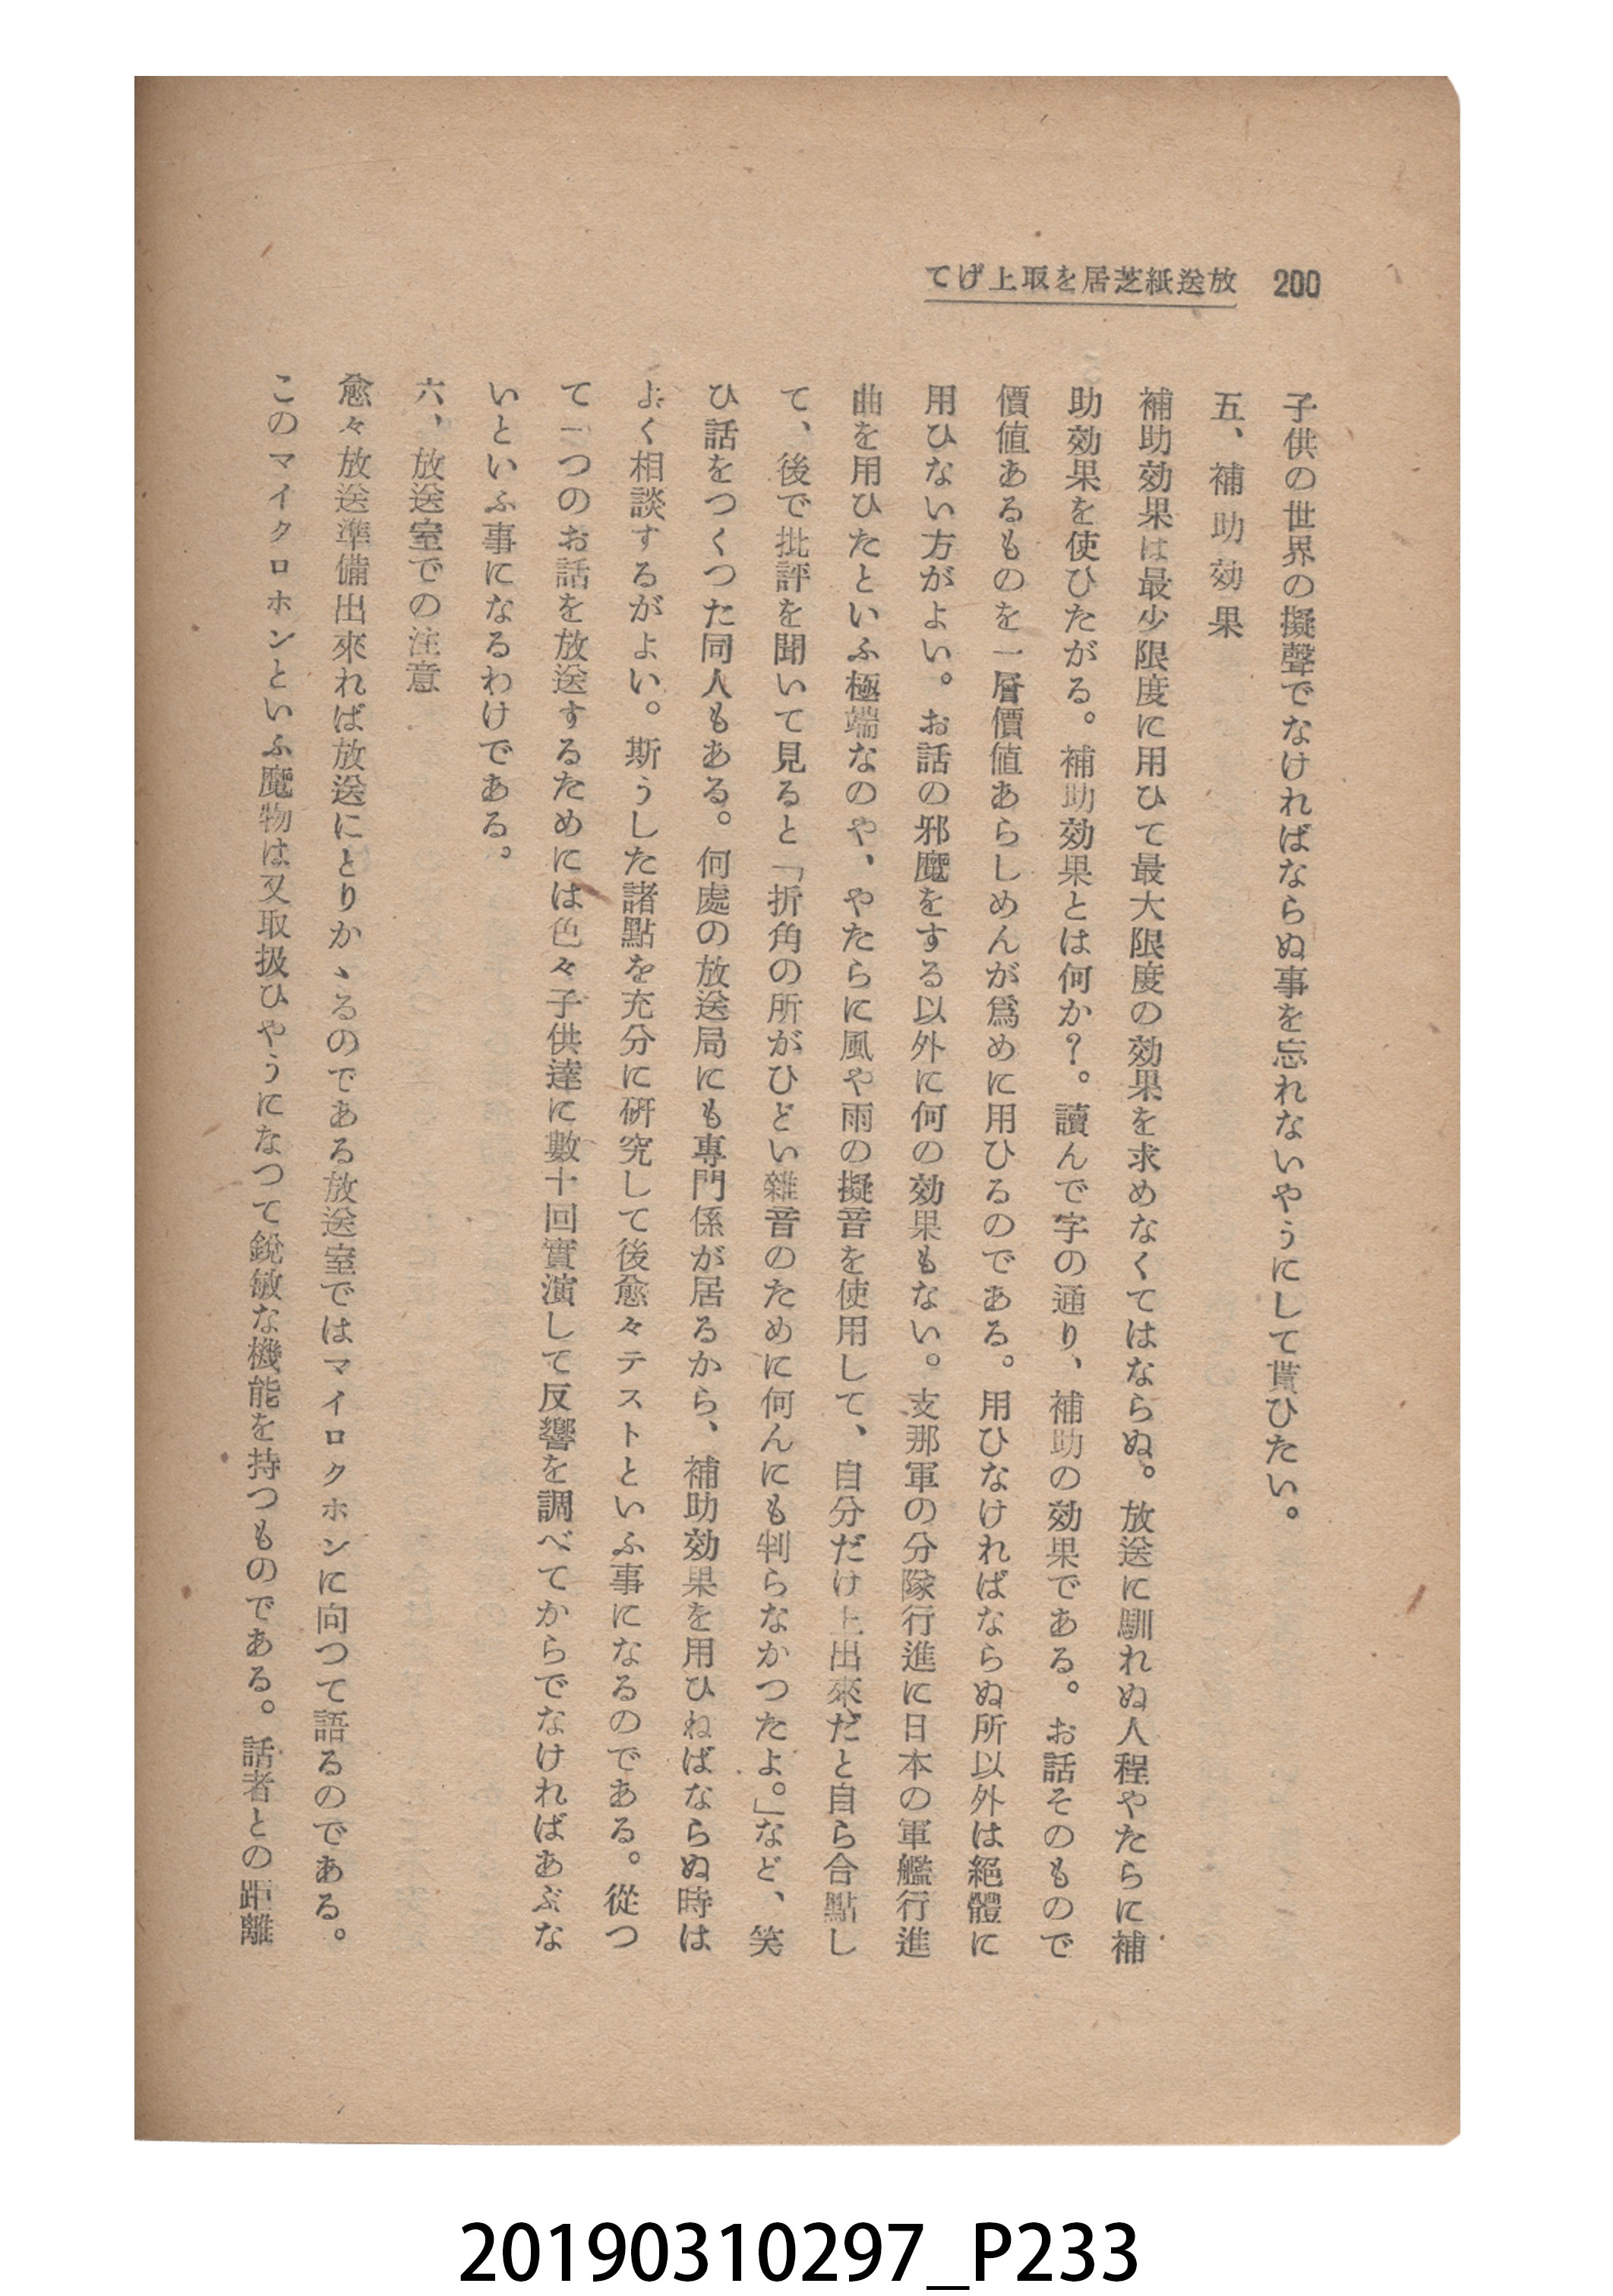 200
放送紙芝居を取上げて
子供の世界の擬聲でなければならぬ事を忘れないやうにして貰ひたい。
五、補助効果
補助効果は最少限度に用ひて最大限度の効果を求めなくてはならぬ。放送に馴れぬ人程やたらに補
助効果を使ひたがる。補助効果とは何か？。讀んで字の通り、補助の効果である。お話そのもので
價値あるものを一層價値あらしめんが爲めに用ひるのである。用ひなければならぬ所以外は絕體に
用ひない方がよい。お話の邪魔をする以外に何の効果もない。支那軍の分隊行進に日本の軍艦行進
曲を用ひたといふ極端なのや、やたらに風や雨の擬音を使用して、自分だけ上出來だと自ら合點し
て、後で批評を聞いて見ると「折角の所がひどい雜音のために何んにも判らなかつたよ。」など、笑
ひ話をつくつた同人もある。何處の放送局にも專門係が居るから、補助効果を用ひねばならぬ時は
よく相談するがよい。斯うした諸點を充分に研究して後愈々テストといふ事になるのである。從つ
て一つのお話を放送するためには色々子供達に數十回實演して反響を調べてからでなければあぶな
いといふ事になるわけである。
六、放送室での注意
愈々放送準備出來れば放送にとりかゝるのである放送室ではマイロクホンに向つて語るのである。
このマイクロホンといふ魔物は又取扱ひやうになつて銳敏な機能を持つものである。話者との距離
20190310297_P233